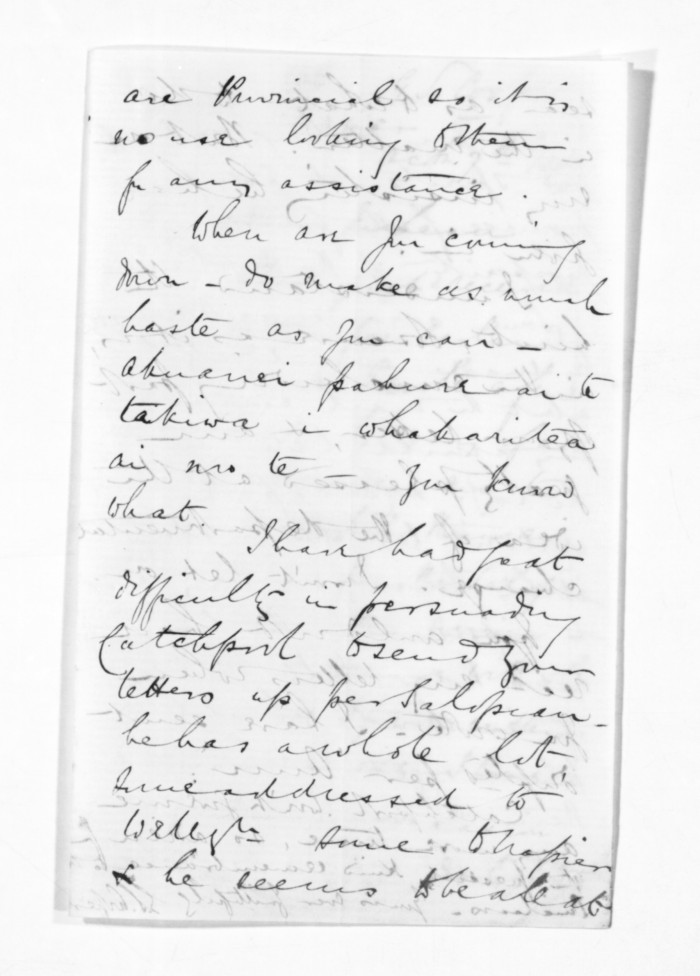 are Provincial so it is
no use looking to them
for any assistance.
When are you coming
down - do make as much
haste as you can -
akuanei pahure ai te
takiwa i whakaritea
ai mo te - you know
what.
I have had great
difficulty in persuading
Catchpool to send your
letters up per Salopian -
he has a whole lot
some addressed to
Wellgtn some to Napier
& he seems to be